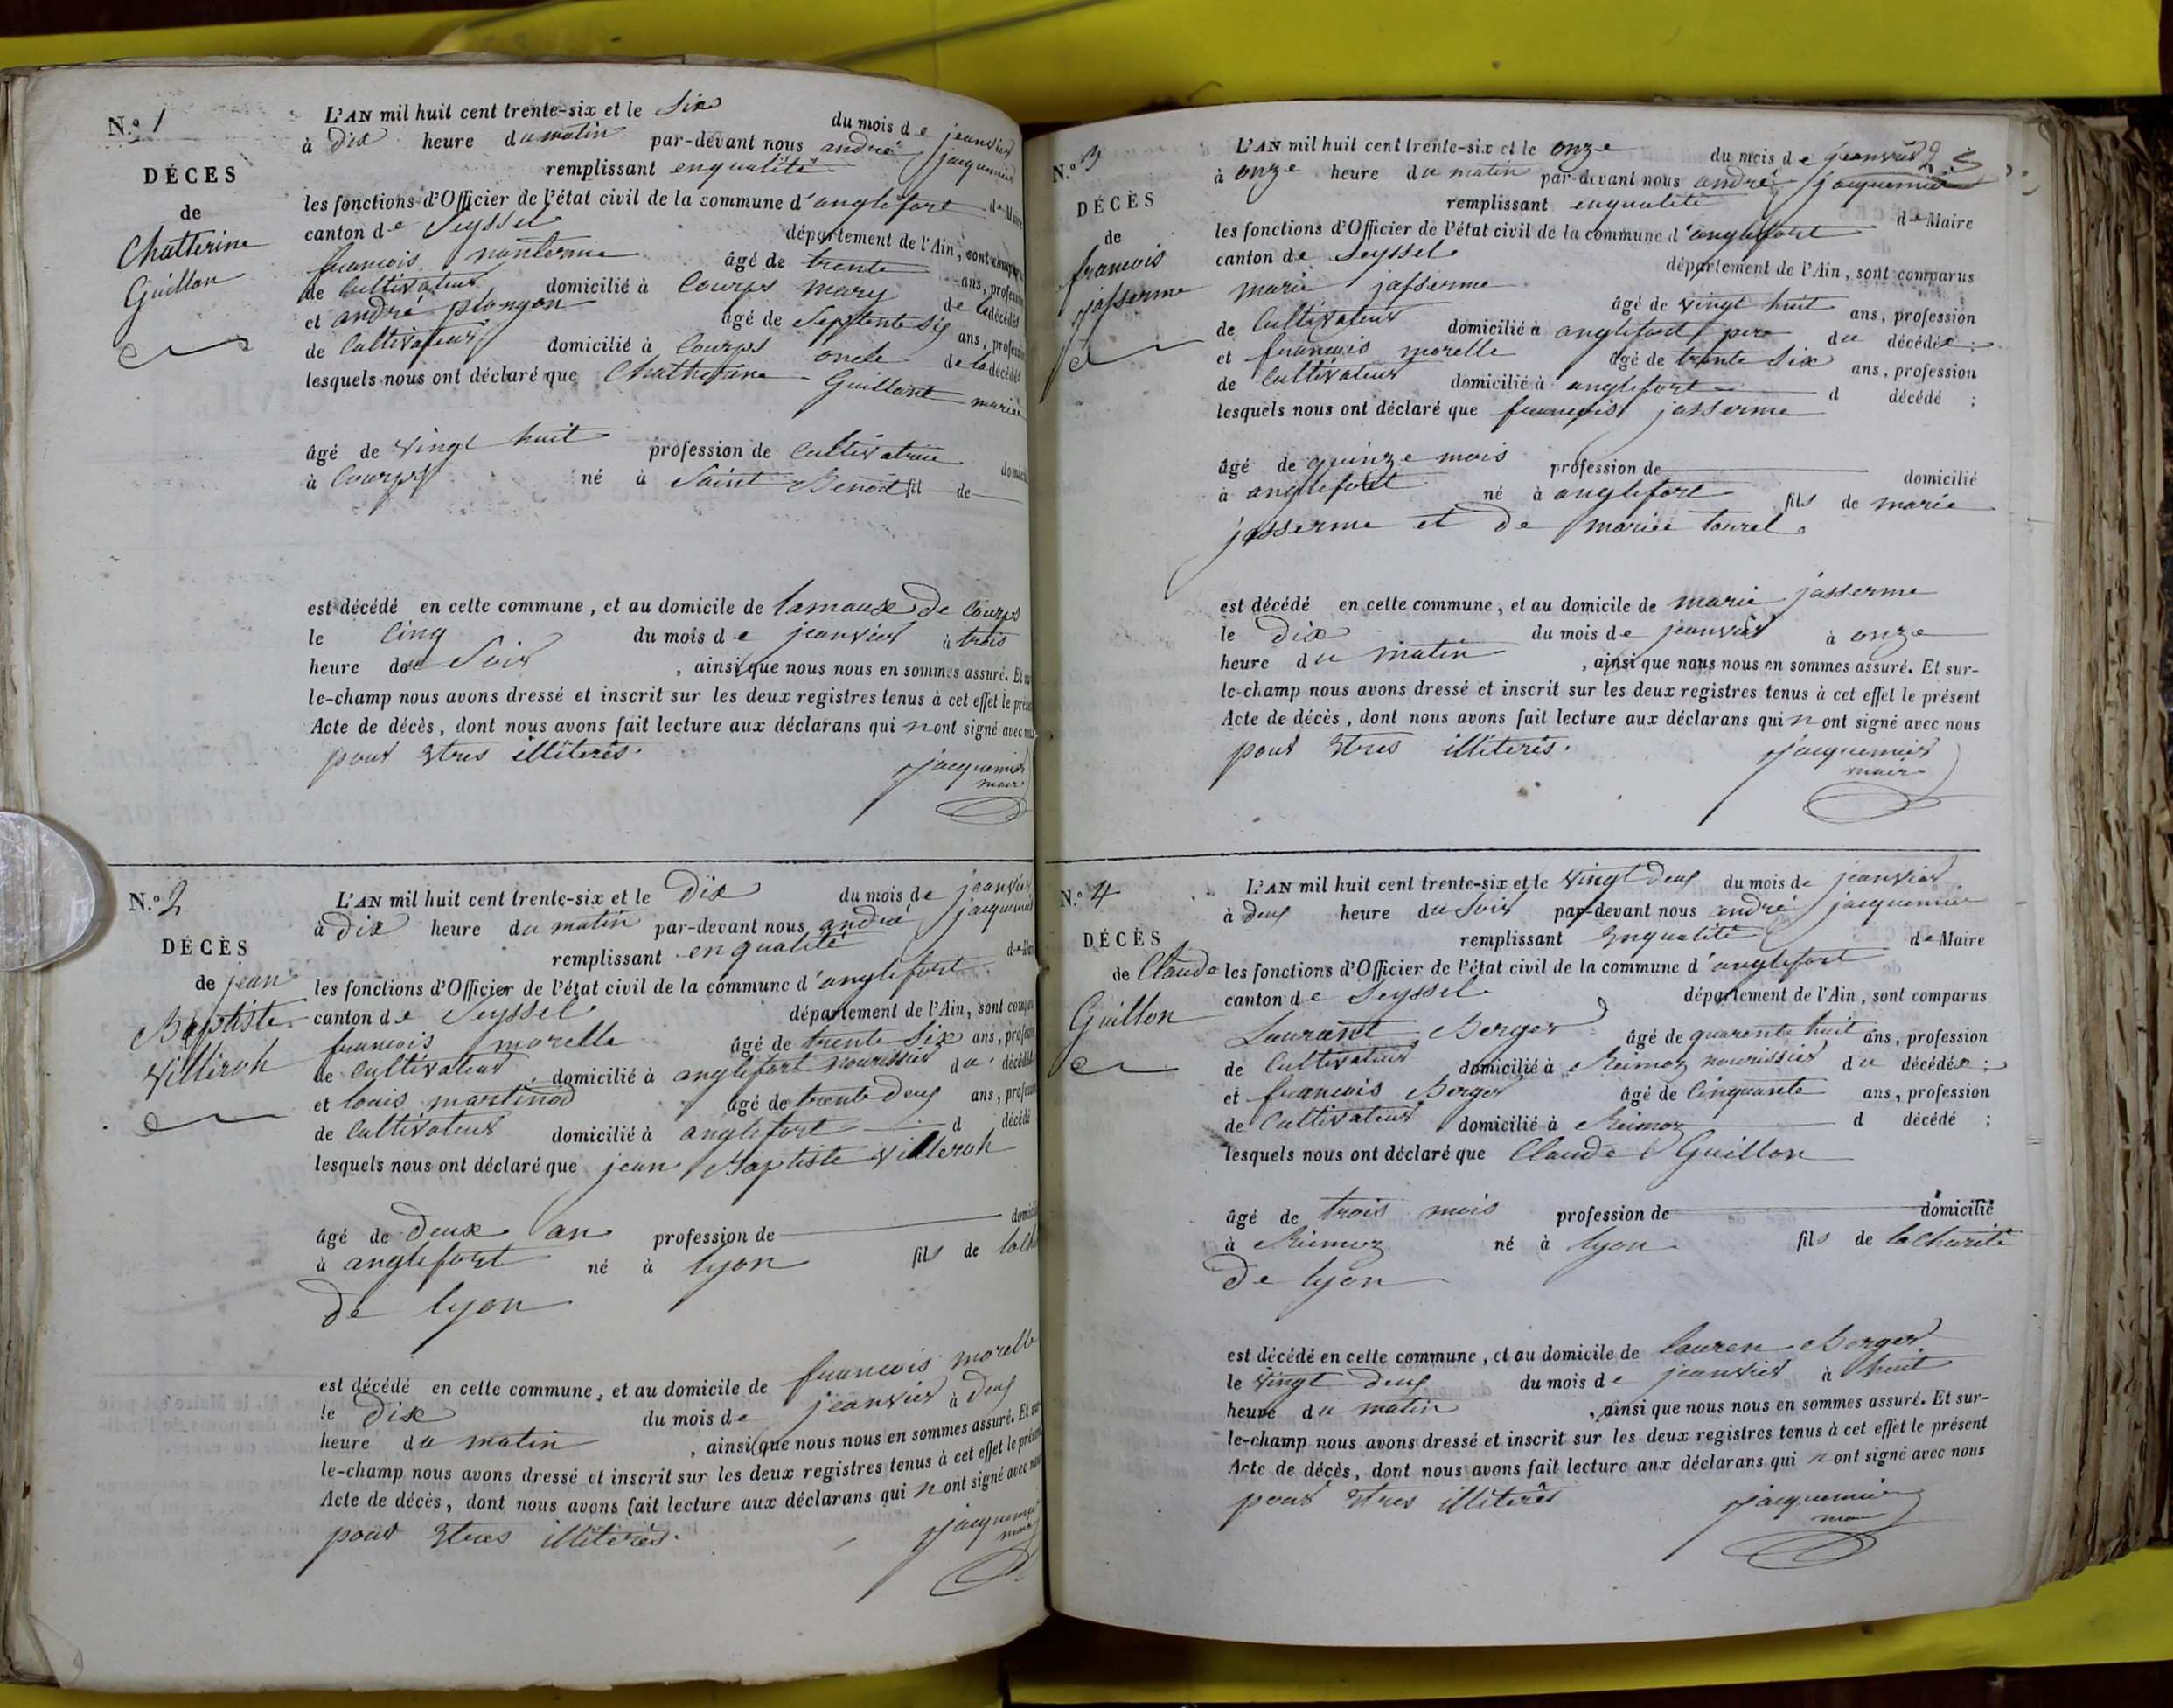 N.o 1
DÉCES
de
Chatterine
Guillon
L'AN mil huit cent trente-six et le Six du mois de jeanvier
à Dix heure du matin par-devant nous andré jacquemier
remplissant enqualité de Maire
les fonctions d'Officier de l'état civil de la commune d'anglefort
canton de Seyssel département de l'Ain, sont comparus
francois nanterme âgé de trente ans, profession
de Cultivateur domicilié à Courps mary de la décédée
et andré plongon âgé de Septente Six ans, profession
de Cultivateur domicilié à Courps oncle de la décédée
lesquels nous ont déclaré que Chatherine Guillont mariée
âgé de vingt huit profession de Cultivatrice domicilié
à Courps né à Saint Benoit fil de
est décédé en cette commune, et au domicile de lamause de Courps
le Cinq du mois de jeanvier à trois
heure du Soir , ainsi que nous nous en sommes assuré. Et sur-
le-champ nous avons dressé et inscrit sur les deux registres tenus à cet effet le présent
Acte de décès, dont nous avons fait lecture aux déclarans qui n ont signé avec nous
pour Etres illiterés.
jacquemier
maire
N.o 2
DÉCÈS
de jean
Baptiste
Villeroh
L'AN mil huit cent trente-six et le Dix du mois de jeanvier
à Dix heure du matin par-devant nous andré jacquemier
remplissant en qualité de Maire
les fonctions d'Officier de l'état civil de la commune d'anglefort
canton de Seyssel département de l'Ain, sont comparus
francois morelle âgé de trente Six ans, profession
de Cultivateur domicilié à anglefort nourissier du décédé
et louis martinod âgé de trente Deus ans, profession
de Cultivateur domicilié à anglefort d décédé
lesquels nous ont déclaré que jean Baptiste villeroh
âgé de Deux an profession de domicilié
à anglefort né à lyon fils de la
De lyon
est décédé en cette commune, et au domicile de francois morelle
le Dix du mois de jeanvier à Deus
heure du matin , ainsi que nous nous en sommes assuré. Et sur-
le-champ nous avons dressé et inscrit sur les deux registres tenus à cet effet le présent
Acte de décès, dont nous avons fait lecture aux déclarans qui n ont signé avec nous
pour Etres illiterés.
jacquemier
maire
N.o 3
DÉCÈS
de
francois
jasserme
L'AN mil huit cent trente-six et le onze du mois de jeanvier
à onze heure du matin par-devant nous andré jacquemier
remplissant enqualité de Maire
les fonctions d'Officier de l'état civil de la commune d'anglefort
canton de Seyssel département de l'Ain, sont comparus
marie jasserme âgé de vingt huit ans, profession
de Cultivateur domicilié à anglefort pere du décédée ;
et francois morelle âgé de trente Six ans, profession
de Cultivateur domicilié à anglefort d décédé ;
lesquels nous ont déclaré que francois jasserme
âgé de quinze mois profession de domicilié
à anglefort né à anglefort fils de marie
jasserme et de mariee tarrel.
est décédé en cette commune, et au domicile de marie jasserme
le Dix du mois de jeanvier à onze
heure du matin , ainsi que nous nous en sommes assuré. Et sur-
le-champ nous avons dressé et inscrit sur les deux registres tenus à cet effet le présent
Acte de décès, dont nous avons fait lecture aux déclarans qui n ont signé avec nous
pour Etres illiterés.
jacquemier
maire
N.o 4
DÉCÈS
de Claude
Guillon
L'AN mil huit cent trente-six et le Vingt Deus du mois de jeanvier
à deus heure du Soir par-devant nous andré jacquemier
remplissant Enqualité de Maire
les fonctions d'Officier de l'état civil de la commune d'anglefort
canton de Seyssel département de l'Ain, sont comparus
Laurant Berger âgé de quarente huit ans, profession
de Cultivateur domicilié à Reimoz nourissier du décédée ;
et francois Berger âgé de Cinquante ans, profession
de Cultivateur domicilié à Reimoz d décédé ;
lesquels nous ont déclaré que Claude Guillon
âgé de trois mois profession de domicilié
à Reimoz né à lyon fils de la Charité
De lyon
est décédé en cette commune, et au domicile de lauren Berger
le Vingt Deus du mois de jeanvier à huit
heure du matin , ainsi que nous nous en sommes assuré. Et sur-
le-champ nous avons dressé et inscrit sur les deux registres tenus à cet effet le présent
Acte de décès, dont nous avons fait lecture aux déclarans qui n ont signé avec nous
pour Etres illiterés
jacquemier